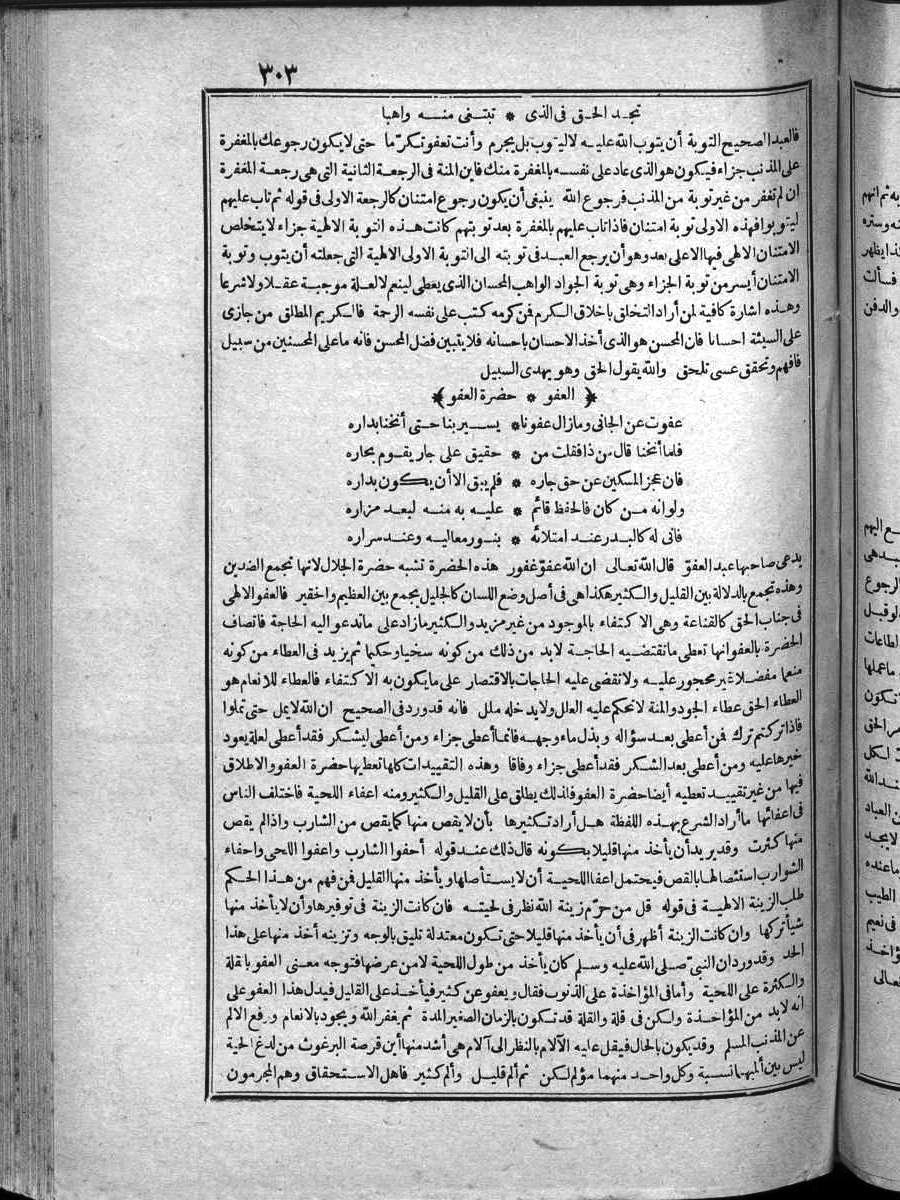 ٣٠٣
تجد الحق فى الذى * تبتغى منه واهبا
فالعبد الصحيح التوبة أن يتوب الله عليه لا ليتوب بل يجرم وأنت تعفو تكرّما حتى لا يكون رجوعك بالمغفرة
على المذنب جزاء فيكون هو الذى عاد على نفسه بالمغفرة منك فاين المنة فى الرجعة الثانية التى هى رجعة المغفرة
ان لم تغفر من غير توبة من المذنب فرجوع الله ينبغى أن يكون رجوع امتنان كالرجعة الاولى فى قوله ثم تاب عليهم
ليتوبوا فهذه الاولى توبة امتنان فاذا تاب عليهم بالمغفرة بعد توبتهم كانت هذه التوبة الالهية جزاء لا يتخلص
الامتنان الالهى فيها الا على بعد وهو أن يرجع العبد فى توبته الى التوبة الاولى الالهية التى جعلته أن يتوب وتوبة
الامتنان أيسر من توبة الجزاء وهى توبة الجواد الواهب المحسان الذى يعطى لينعم لا لعلة موجبة عقلا ولا شرعا
وهذه اشارة كافية لمن أراد التخلق باخلاق الكرم فمن كرمه كتب على نفسه الرحمة فالكريم المطلق من جازى
على السيئة احسانا فان المحسن هو الذى أخذ الاحسان باحسانه فلا يتبين فضل المحسن فانه ما على المحسنين من سبيل
فافهم وتحقق عسى تلحق والله يقول الحق وهو يهدى السبيل
﴿ العفو * حضرة العفو ﴾
عفوت عن الجانى وما زال عفونا * يسير بنا حتى أنخنا بداره
فلما أنخنا قال من ذا فقلت من * حقيق على جار يقوم بجاره
فان عجز المسكين عن حق جاره * فلم يبق الا أن يكون بداره
ولو انه من كان فالحفظ قائم * عليه به منه لبعد مزاره
فانى له كالبدر عند امتلائه * بنور معاليه وعند سراره
يدعى صاحبها عبد العفوّ قال الله تعالى ان الله عفوّ غفور هذه الحضرة تشبه حضرة الجلال لانها تجمع الضدين
وهذه تجمع بالدلالة بين القليل والكثير هكذا هى فى أصل وضع اللسان كالجليل يجمع بين العظيم والحقير فالعفو الالهى
فى جناب الحق كالقناعة وهى الاكتفاء بالموجود من غير مزيد والكثير ما زاد على ما تدعو اليه الحاجة فاتصاف
الحضرة بالعفو انها تعطى ما تقتضيه الحاجة لا بد من ذلك من كونه سخيا وحكيما ثم يزيد فى العطاء من كونه
منعما مفضلا غير محجور عليه ولا تقضى عليه الحاجات بالاقتصار على ما يكون به الاكتفاء فالعطاء للانعام هو
العطاء الحق عطاء الجود والمنة لا تحكم عليه العلل ولا يدخله ملل فانه قد ورد فى الصحيح ان الله لا يمل حتى تملوا
فاذا تركتم ترك فمن أعطى بعد سؤاله وبذل ماء وجهه فانما أعطى جزاء ومن أعطى ليشكر فقد أعطى لعلة يعود
خيرها عليه ومن أعطى بعد الشكر فقد أعطى جزاء وفاقا وهذه التقييدات كلها تعطيها حضرة العفو والاطلاق
فيها من غير تقييد تعطيه أيضا حضرة العفو فلذلك يطلق على القليل والكثير ومنه اعفاء اللحية فاختلف الناس
فى اعفائها ما أراد الشرع بهذه اللفظة هل أراد تكثيرها بأن لا يقص منها كما يقص من الشارب واذا لم يقص
منها كثرت وقد يريد أن يأخذ منها قليلا بكونه قال ذلك عند قوله أحفوا الشارب واعفوا اللحى واحفاء
الشوارب استئصالها بالقص فيحتمل اعفا اللحية أن لا يستأصلها ويأخذ منها القليل فمن فهم من هذا الحكم
طلب الزينة الالهية فى قوله قل من حرّم زينة الله نظر فى لحيته فان كانت الزينة فى توفيرها وأن لا يأخذ منها
شيأ تركها وان كانت الزينة أظهر فى أن يأخذ منها قليلا حتى تكون معتدلة تليق بالوجه وتزينه أخذ منها على هذا
الحد وقد ورد ان النبىّ صلى الله عليه وسلم كان يأخذ من طول اللحية لا من عرضها فتوجه معنى العفو بالقلة
والكثرة على اللحية وأما فى المؤاخذة على الذنوب فقال ويعفو عن كثير فيأخذ على القليل فيدل هذا العفو على
انه لا بد من المؤاخذة ولكن فى قلة والقلة قد تكون بالزمان الصغير المدة ثم يغفر الله ويجود بالانعام ورفع الالم
عن المذنب المسلم وقد يكون بالحال فيقل عليه الآلام بالنظر الى آلام هى أشد منها أين قرصة البرغوث من لدغ الحية
ليس بين ألميهما نسبة وكل واحد منهما مؤلم لكن ثم ألم قليل وألم كثير فاهل الاستحقاق وهم المجرمون